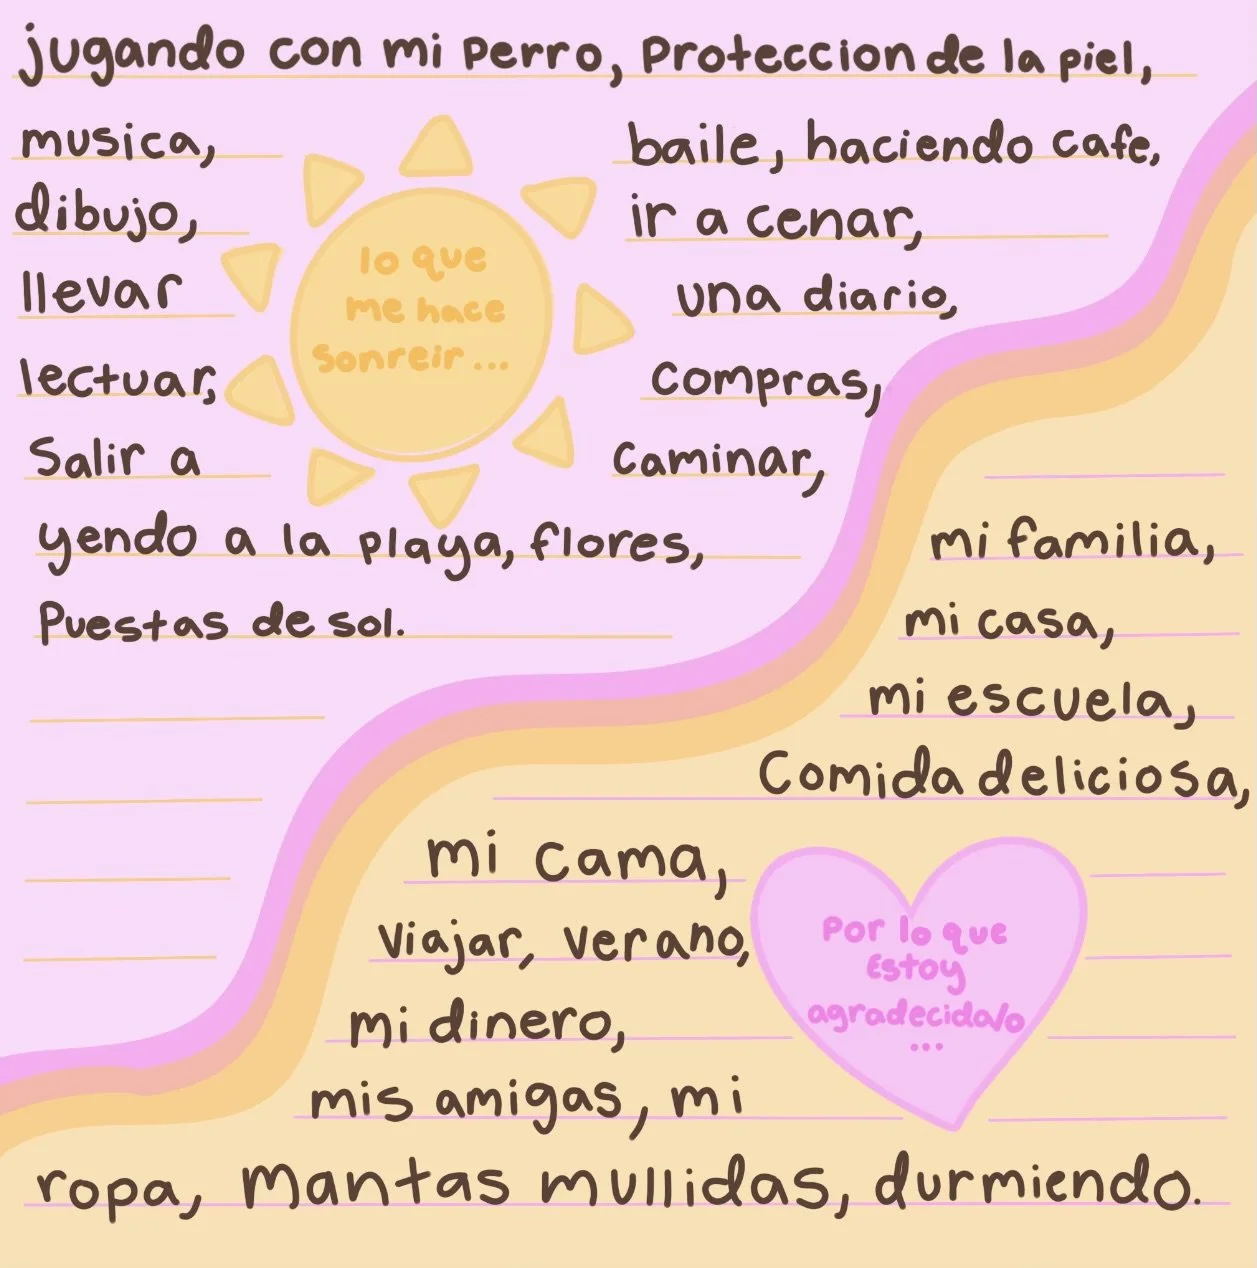 jugando con mi perro, Proteccion de la piel,
musica,
dibujo,
llevar
lectuar,
Salir a
lo que
me hace
sonreir ...
baile, haciendo cafe,
ir a cenar,
una diario,
compras,
caminar,
yendo a la playa, flores,
Puestas de sol.
mi familia,
mi casa,
mi escuela,
Comida deliciosa,
mi cama,
viajar, verano,
mi dinero,
mis amigas, mi
ropa, mantas mullidas, durmiendo.
Por lo que
Estoy
agradecida/o
...